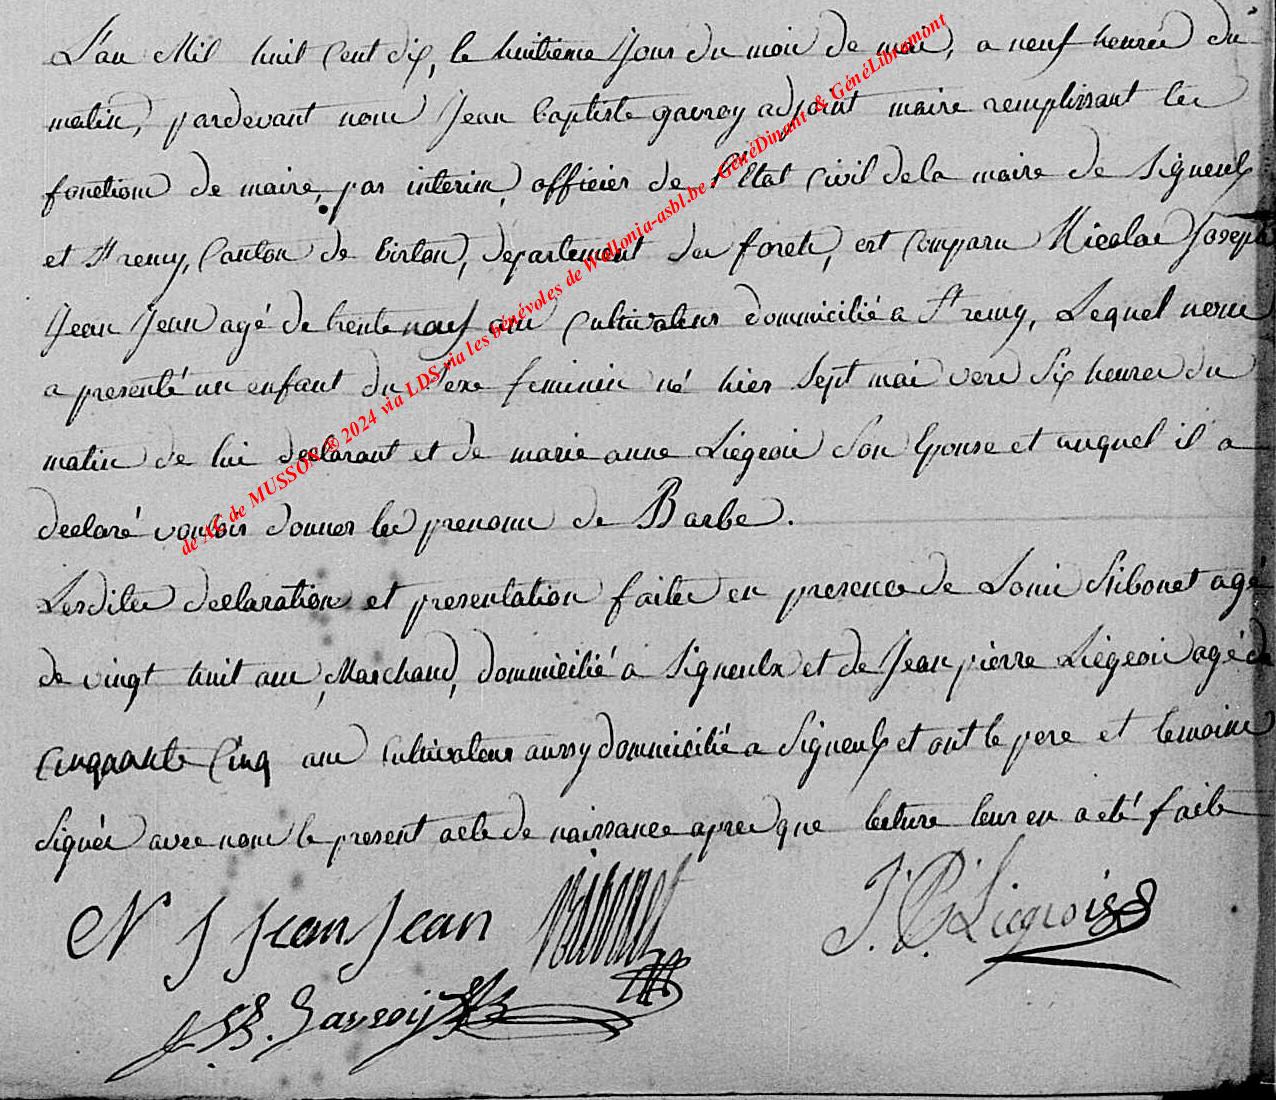 L'an Mil huit Cent dix, le huitieme Jour du mois de mai, a neuf heures du
matin, pardevant nous Jean baptiste gavroy adjoint maire remplissant les
fonctions de maire, par interim, officier de l'Etat Civil de la mairie de Signeulx
et St remy, Canton de Virton, departement des forets, est Comparu Nicolas Joseph
Jean Jean agé de trente neuf ans Cultivateur domicilié a St remy, Lequel nous
a presenté un enfant du Sexe feminin né hier Sept mai vers Six heures du
matin de lui declarant et de marie anne Liégeois Son Epouse et auquel il a
declaré vouloir donner les prenoms de Barbe.
Lesdites declaration et presentation faites en presence de Louis Nibonet agé
de vingt huit ans, Marchand, domicilié à Signeulx et de Jean pierre Liégeois agé de
Cinquante Cinq ans Cultivateur aussy domicilié a Signeulx et ont le pere et temoins
Signés avec nous le present acte de naissance apres que lecture leur en a été faite
N J Jean Jean Nibonet J. P. Liegeois
J B. Gavroy
de AC de MUSSON © 2024 via LDS via les bénévoles de Wallonia-asbl.be - GénéDinant & GénéLibramont